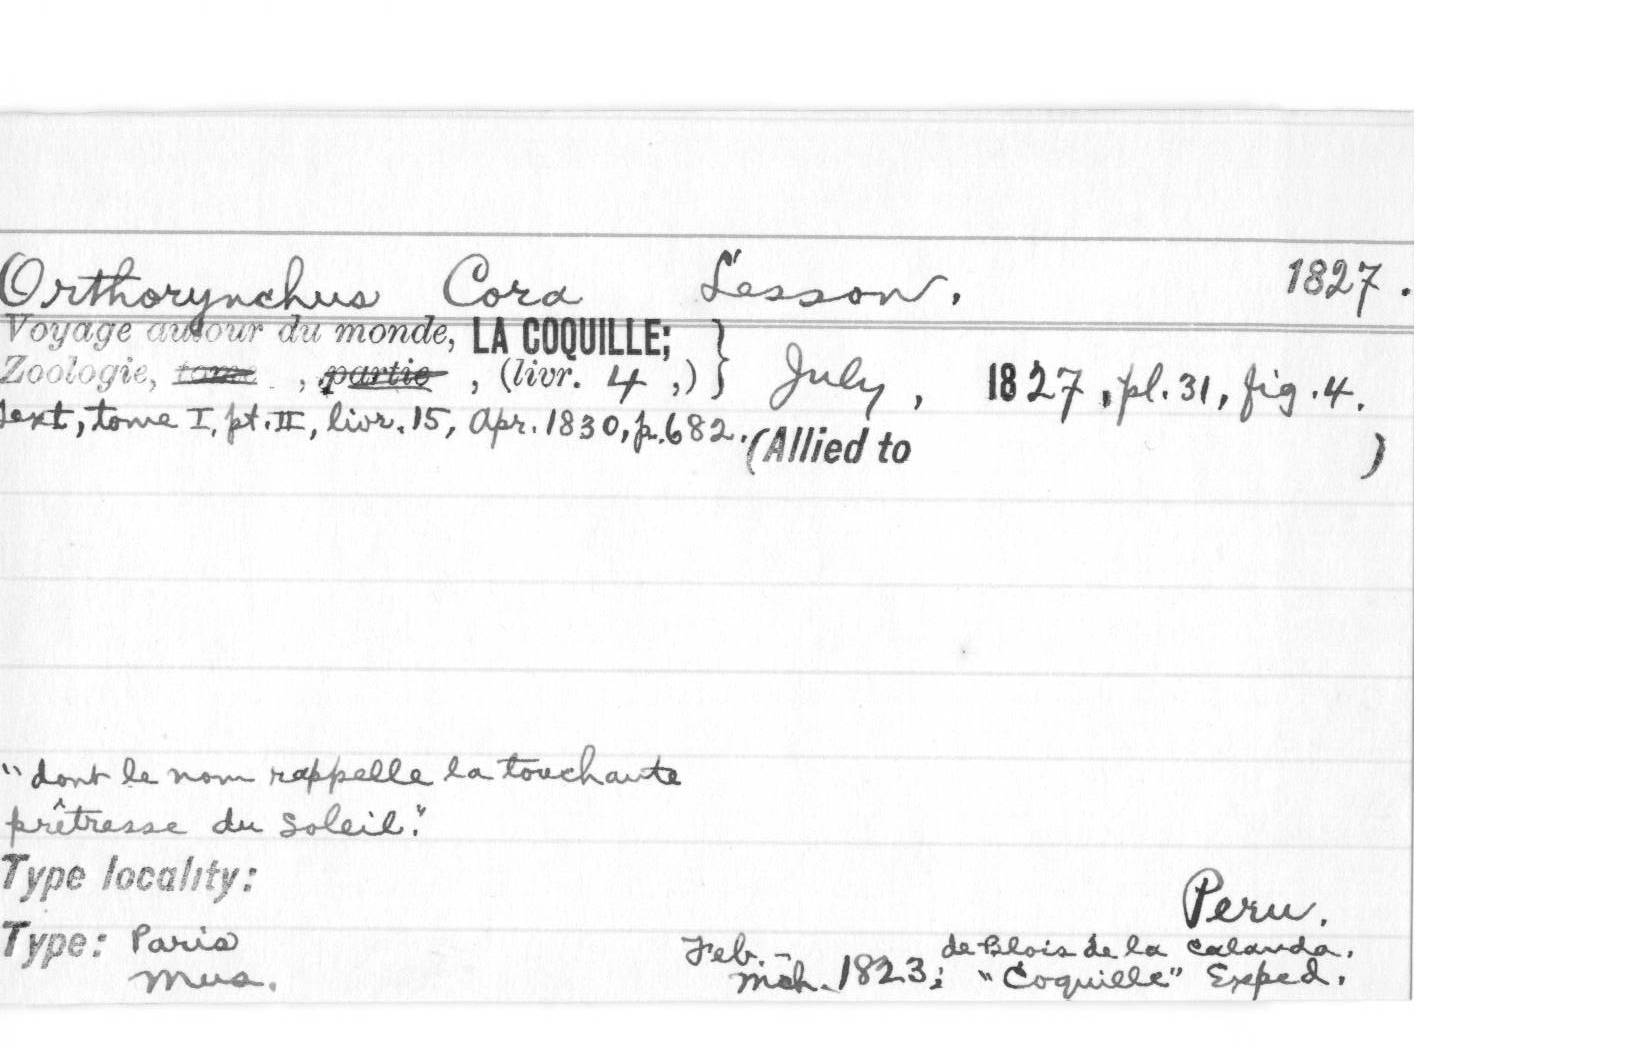 Orthorynchus Cora Lesson. 1827.
Voyage autour du monde, LA COQUILLE;
Zoologie, tome , partie , (livr. 4 ,) } July, 1827, pl. 31, fig. 4.
Text, tome I, pt. II, livr. 15, Apr. 1830, p. 682. (Allied to )
"dont le nom rappelle la touchante
prêtresse du Soleil."
Type locality:
Peru.
Type: Paris Feb.- de Blois de la Calanda.
Mus. Mch. 1823; "Coquille" Exped.